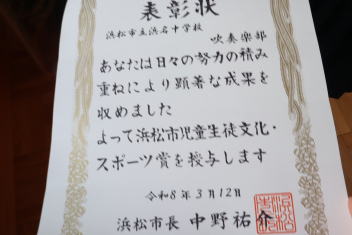 表彰状
浜松市立浜名中学校
吹奏楽部
あなたは日々の努力の積み
重ねにより顕著な成果を
収めました
よって浜松市児童生徒文化・
スポーツ賞を授与します
令和8年3月12日
浜松市長 中野祐介